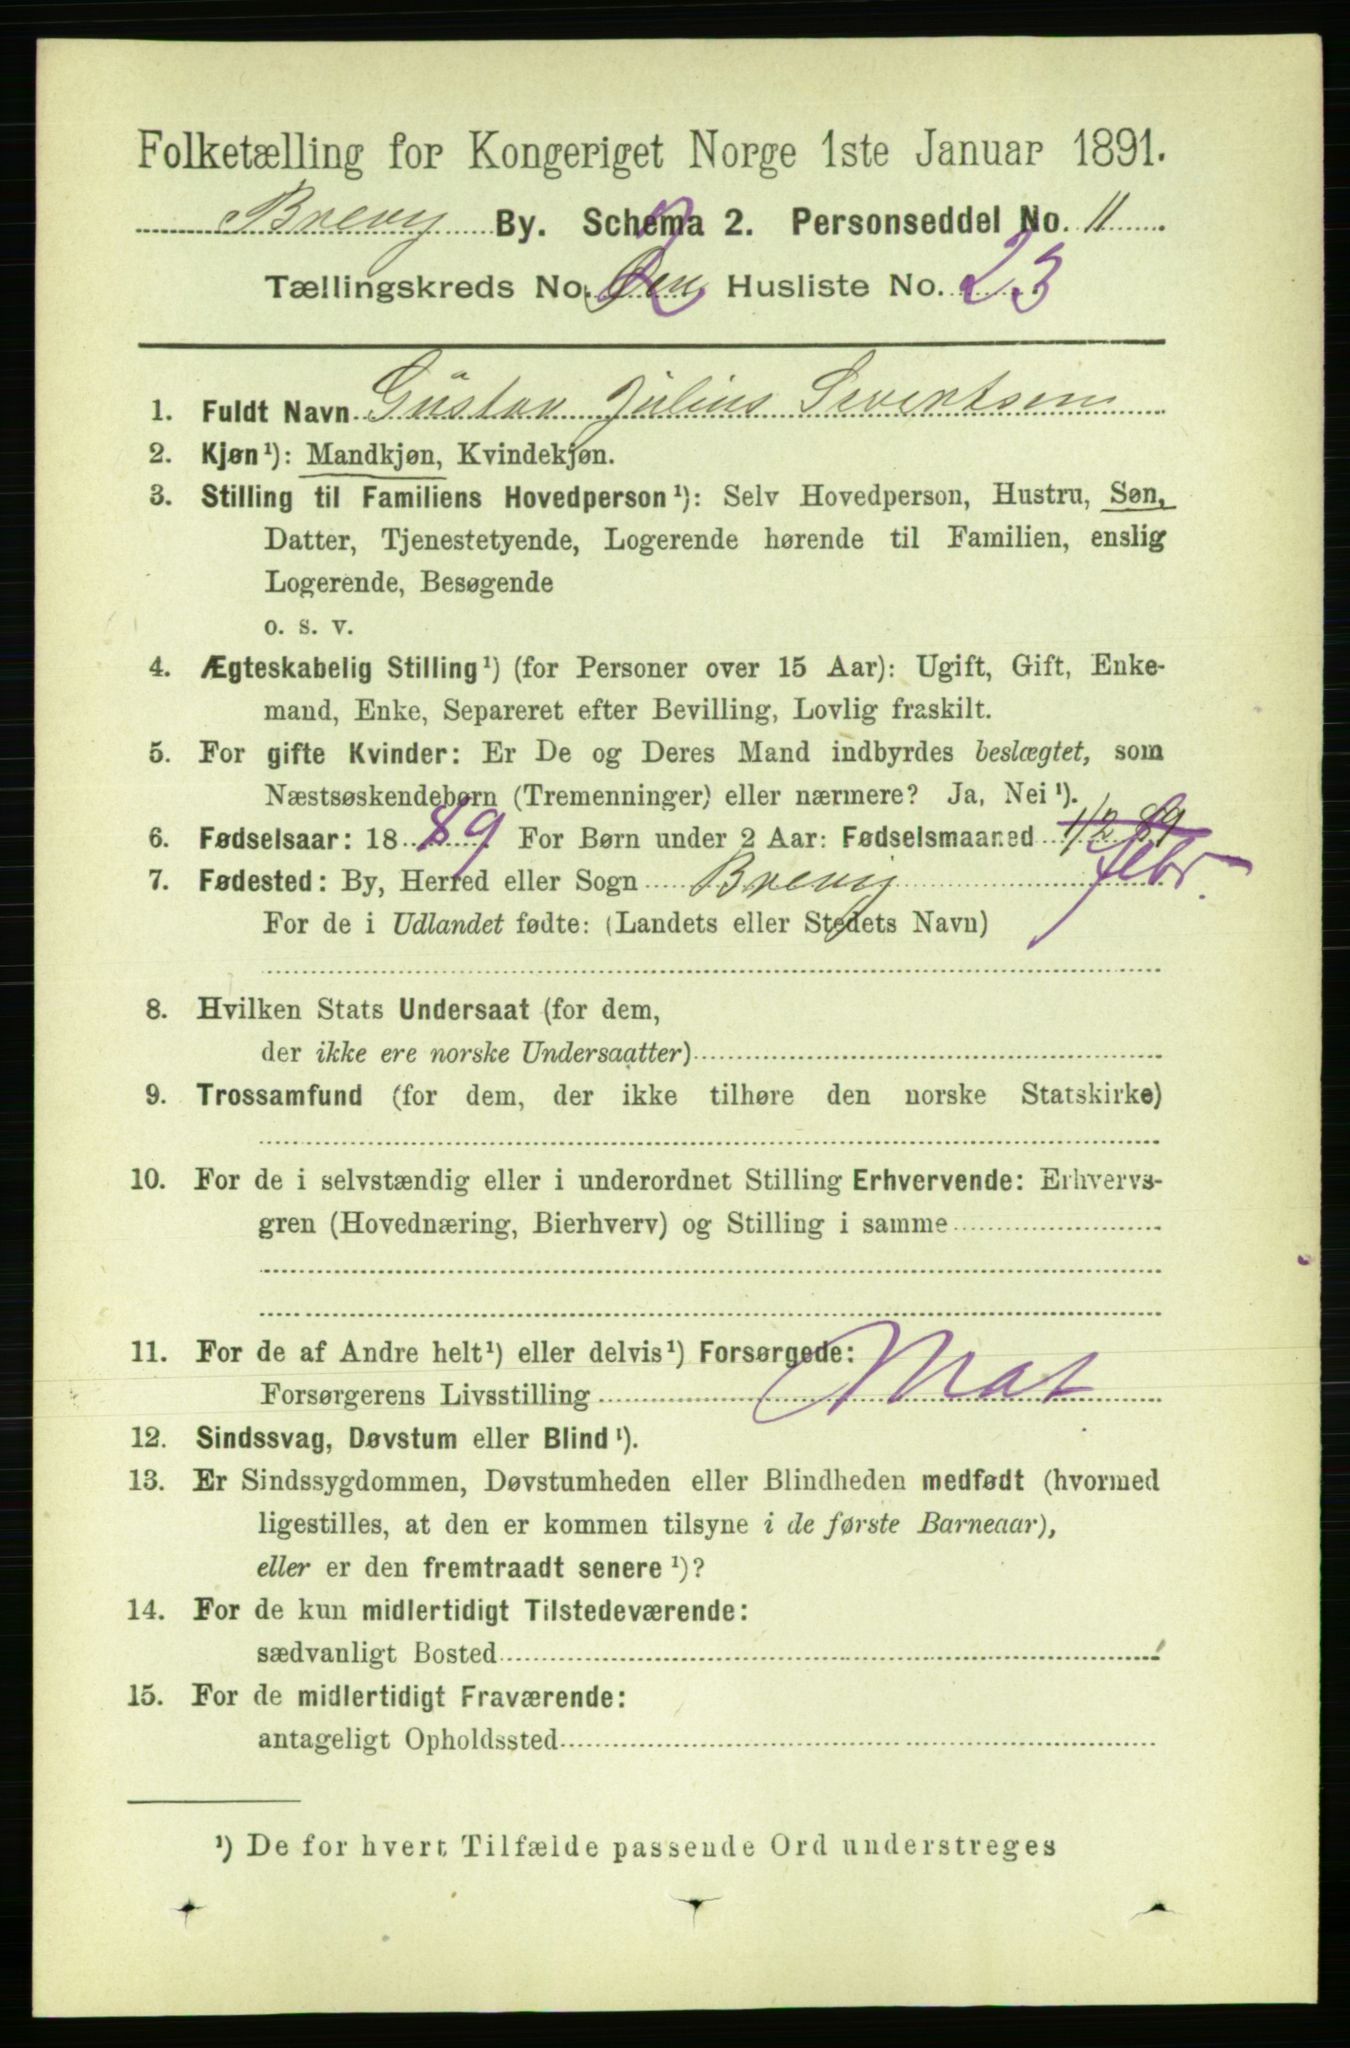 Folketælling for Kongeriget Norge 1ste Januar 1891.
Brevig By. Schema 2. Personseddel No. 11
Tællingskreds No. 2 Husliste No. 23
1. Fuldt Navn Gustav Julius Seventsen
2. Kjøn¹): Mandkjøn, Kvindekjøn.
3. Stilling til Familiens Hovedperson¹): Selv Hovedperson, Hustru, Søn,
Datter, Tjenestetyende, Logerende hørende til Familien, enslig
Logerende, Besøgende
o. s. v.
4. Ægteskabelig Stilling¹) (for Personer over 15 Aar): Ugift, Gift, Enke-
mand, Enke, Separeret efter Bevilling, Lovlig fraskilt.
5. For gifte Kvinder: Er De og Deres Mand indbyrdes beslægtet, som
Næstsøskendebørn (Tremenninger) eller nærmere? Ja, Nei¹).
6. Fødselsaar: 1889 For Børn under 2 Aar: Fødselsmaaned 1/2 89
Febr.
7. Fødested: By, Herred eller Sogn Brevig
For de i Udlandet fødte: (Landets eller Stedets Navn)
8. Hvilken Stats Undersaat (for dem,
der ikke ere norske Undersaatter)
9. Trossamfund (for dem, der ikke tilhøre den norske Statskirke)
10. For de i selvstændig eller i underordnet Stilling Erhvervende: Erhvervs-
gren (Hovednæring, Bierhverv) og Stilling i samme
11. For de af Andre helt¹) eller delvis¹) Forsørgede:
Forsørgerens Livsstilling Mat
12. Sindssvag, Døvstum eller Blind¹).
13. Er Sindssygdommen, Døvstumheden eller Blindheden medfødt (hvormed
ligestilles, at den er kommen tilsyne i de første Barneaar),
eller er den fremtraadt senere¹)?
14. For de kun midlertidigt Tilstedeværende:
sædvanligt Bosted
15. For de midlertidigt Fraværende:
antageligt Opholdssted
¹) De for hvert Tilfælde passende Ord understreges